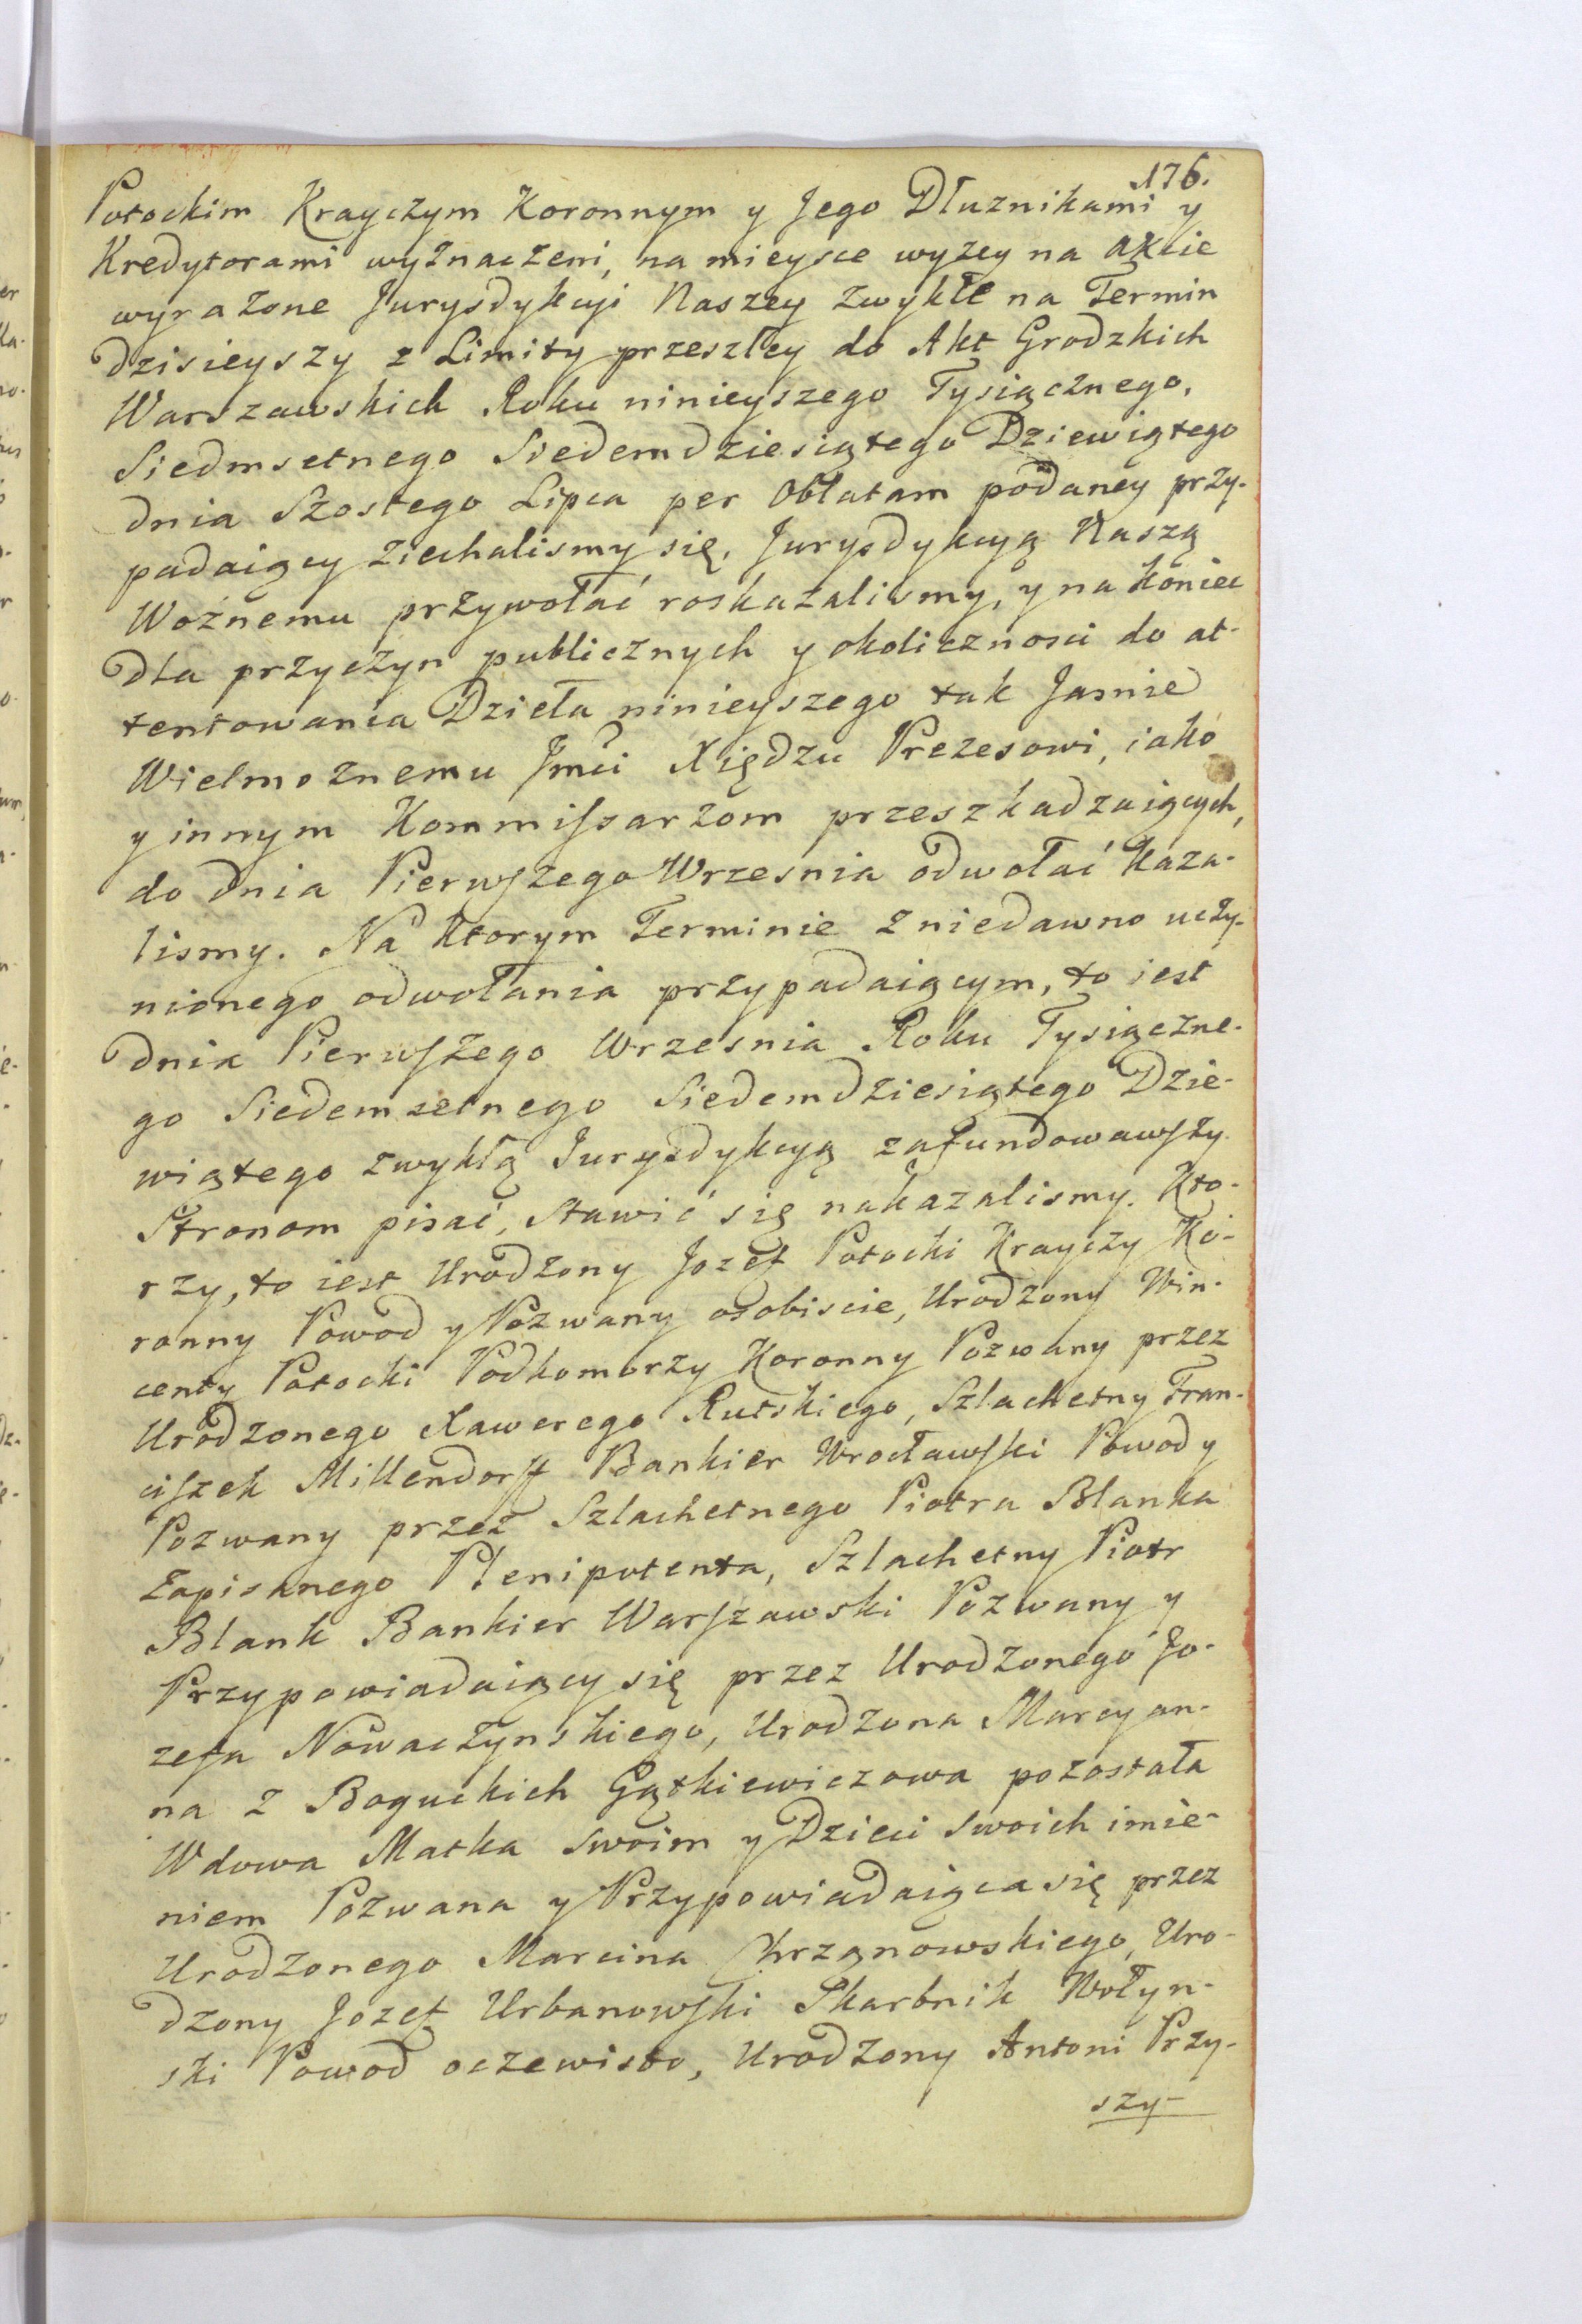 176.
Potockim Krayczym Koronnym y Jego Dłuznikami y
Kredytorami wyznaczeni, na mieysce wyzey na akcie
wyrazone Jurysdykcyi Naszey zwykłe na Termin
dzisieyszy z Limity przeszłey do Akt Grodzkich
Warszawskich Roku ninieyszego Tysiącznego,
Siedmsetnego Siedemdziesiątego Dziewiątego
dnia Szostego Lipca per Oblatam podaney przy-
padaiący ziechalismy się, Jurysdykcyą Naszą
Woźnemu przywołać roskazalismy, y na koniec
dla przyczyn publicznych y okolicznosci do at-
tentowania Dzieła ninieyszego tak Jasnie
Wielmoznemu Jmci Xiędzu Prezesowi, iako
y innym Kommissarzom przeszkadzaiących,
do dnia Pierwszego Wrzesnia odwołać kaza-
lismy. Na ktorym Terminie z niedawno uczy-
nionego odwołania przypadaiącym, to iest
dnia Pierwszego Wrzesnia Roku Tysiączne-
go Siedemsetnego Siedemdziesiątego Dzie-
wiątego zwykłą Jurysdykcyą zafundowawszy
Stronom pisać, stawić się nakazalismy. Kto-
rzy, to iest Urodzony Jozef Potocki Krayczy Ko-
ronny Powod y Pozwany osobiscie, Urodzony Win-
centy Potocki Podkomorzy Koronny Pozwany przez
Urodzonego Xawerego Rutskiego, Szlachetny Fran-
ciszek Millendorff Bankier Wrocławski Powod y
Pozwany przez Szlachetnego Piotra Blanka
Zapisanego Plenipotenta, Szlachetny Piotr
Blank Bankier Warszawski Pozwany y
Przypowiadaiący się przez Urodzonego Jo-
zefa Nowaczynskiego, Urodzona Marcyan-
na z Boguckich Gątkiewiczowa pozostała
Wdowa Matka swoim y Dzieci swoich imie-
niem Pozwana y Przypowiadaiąca się przez
Urodzonego Marcina Chrzanowskiego, Uro-
dzony Jozef Urbanowski Skarbnik Wołyn-
ski Powod oczewisto, Urodzony Antoni Przy-
szy-